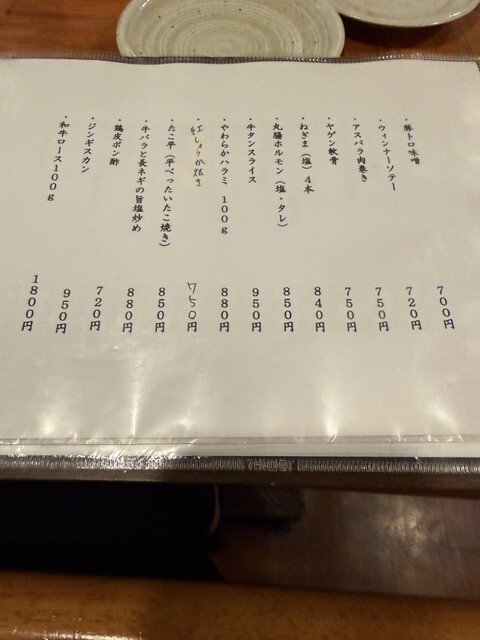 ・豚トロ味噌 ７００円
・ウィンナーソテー ７２０円
・アスパラ肉巻き ７５０円
・ヤゲン軟骨 ７５０円
・ねぎま（塩）４本 ８４０円
・丸腸ホルモン（塩・タレ） ８５０円
・牛タンスライス ９５０円
・やわらかハラミ １００ｇ ８８０円
・紅しょうが焼き 750円
・たこ平（平べったいたこ焼き） ８５０円
・牛バラと長ネギの旨塩炒め ８８０円
・鶏皮ポン酢 ７２０円
・ジンギスカン ９５０円
・和牛ロース１００ｇ １８００円